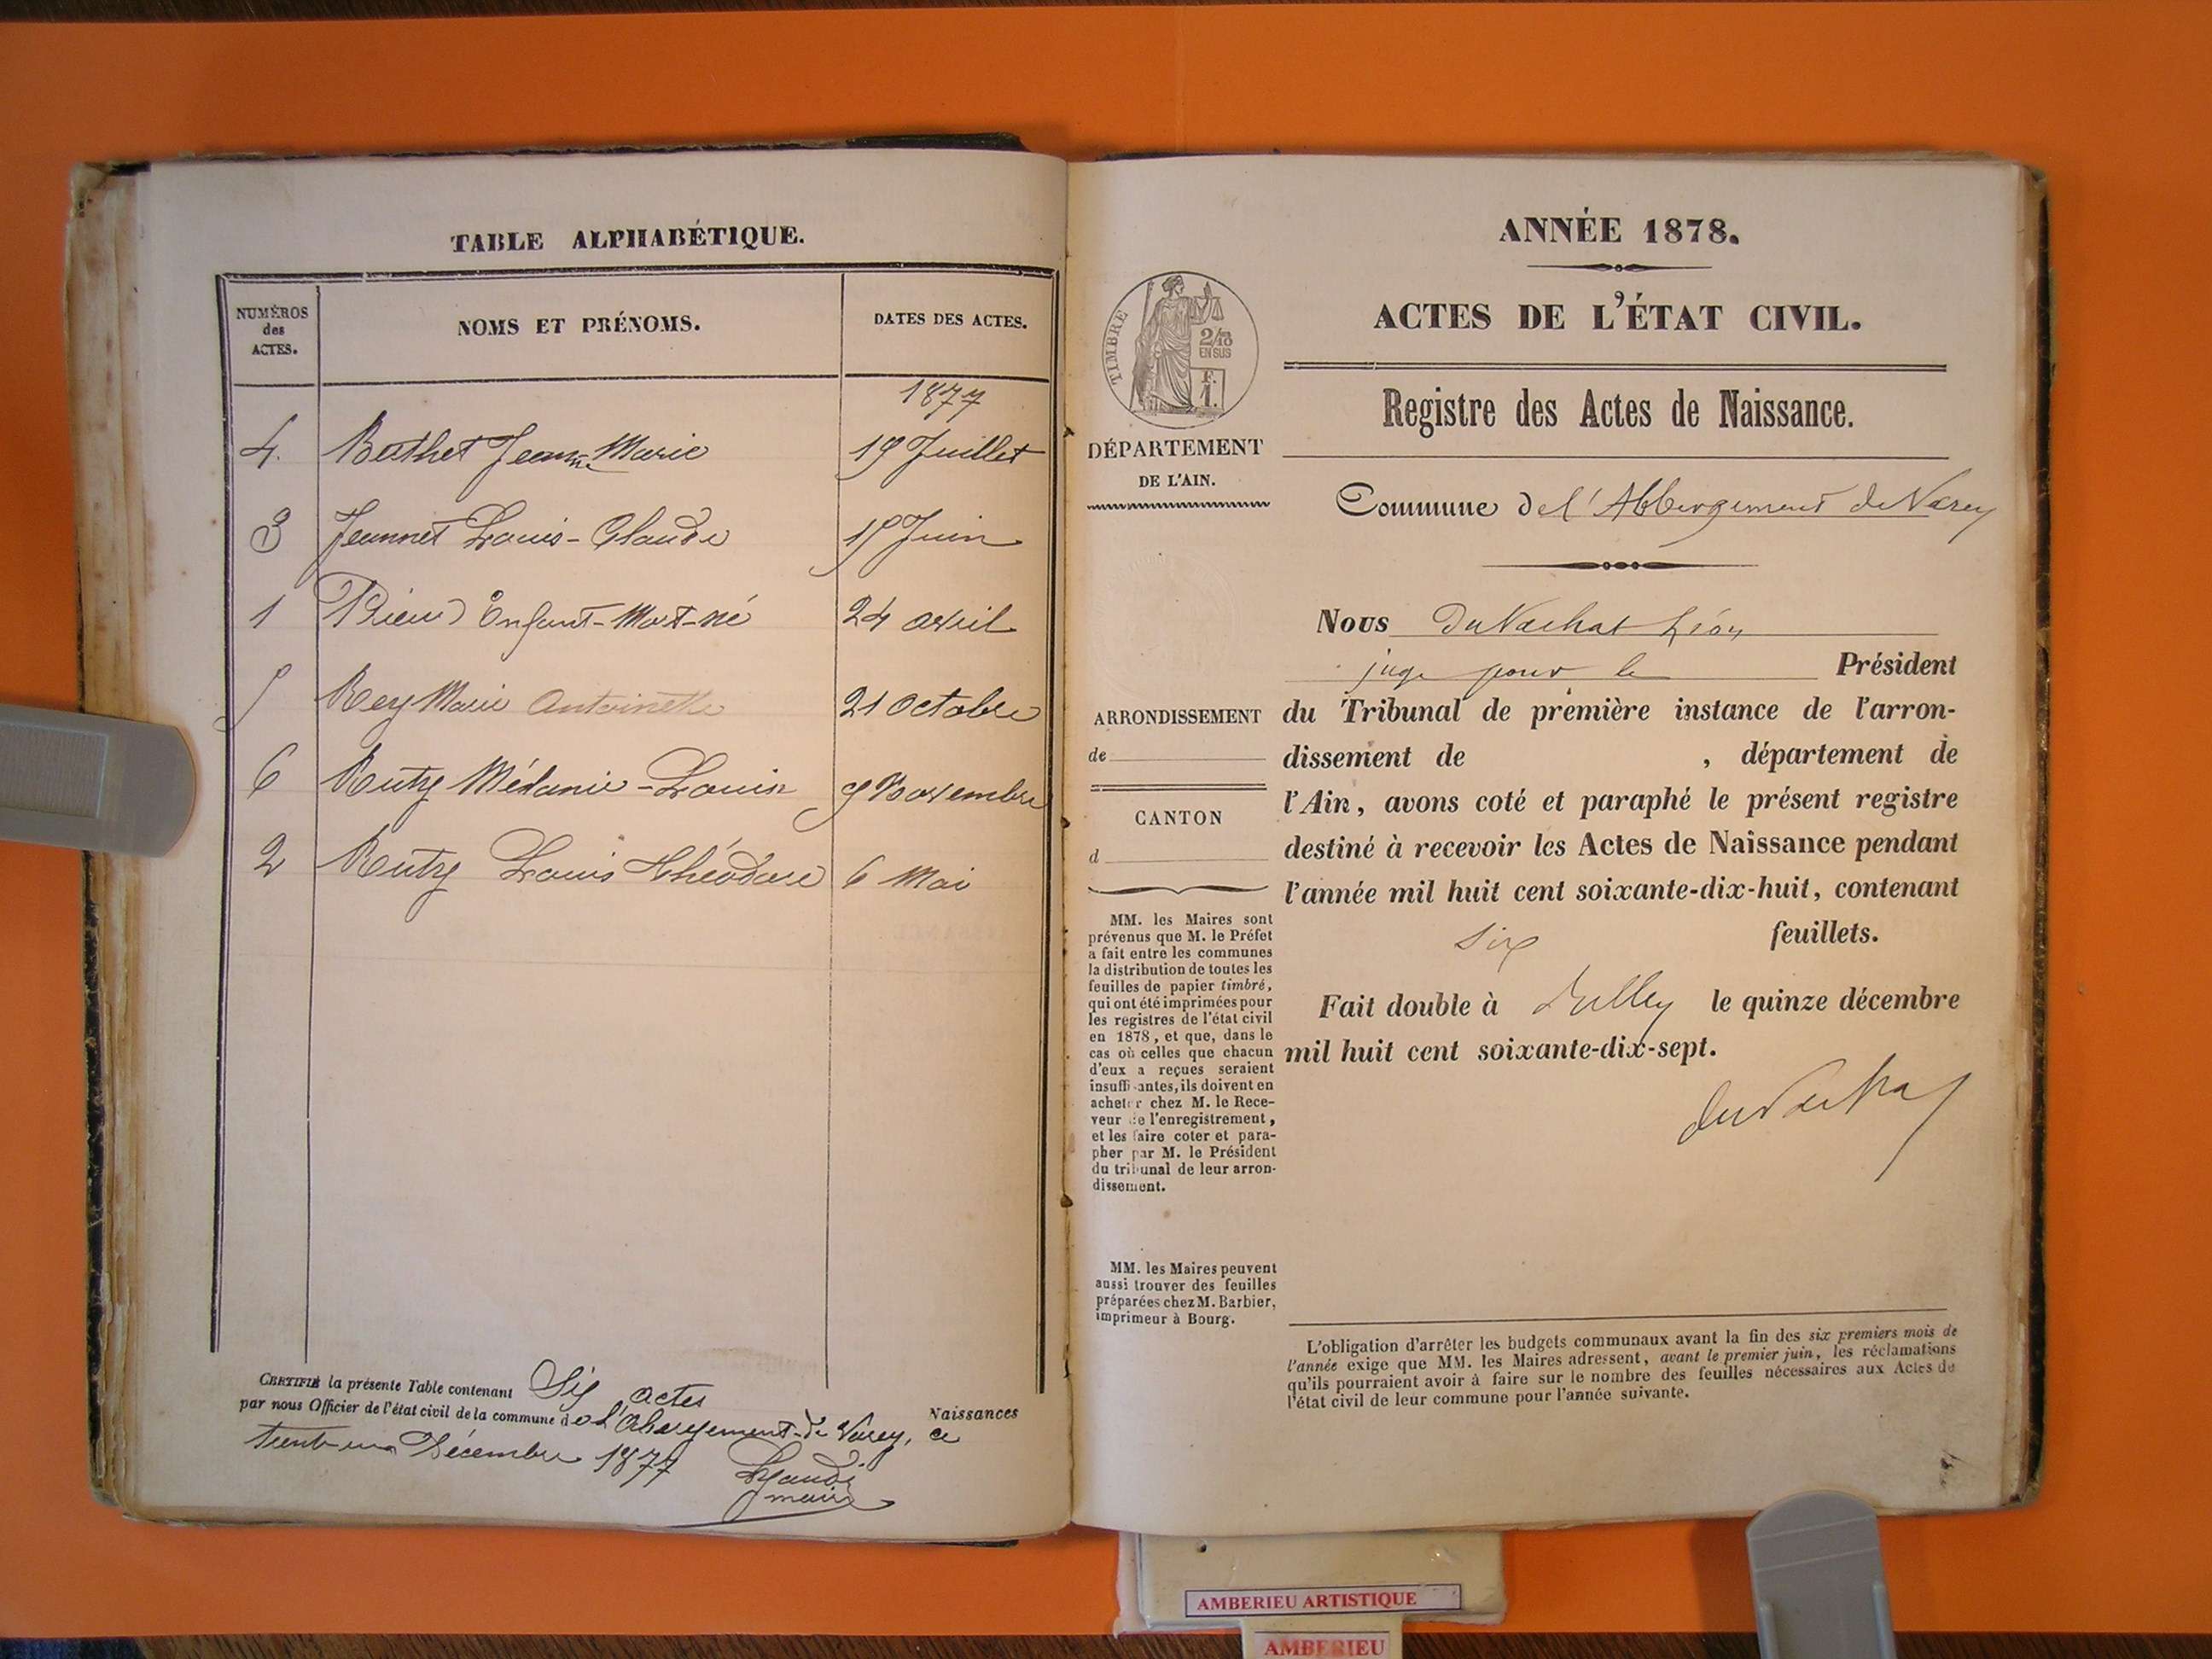 TABLE ALPHABÉTIQUE.
NUMÉROS des ACTES.
NOMS ET PRÉNOMS.
DATES DES ACTES.
1877
4. Berthet Jeanne Marie 19 Juillet
3 Jeannet Louis-Claude 15 Juin
1 Enfant-Mort-né 24 avril
5 Rey Marie Antoinette 21 Octobre
6 Rutry Mélanie-Louise 9 Novembre
2 Rutry Louis Théodore 6 Mai
CERTIFIÉ la présente Table contenant Six actes Naissances
par nous Officier de l'état civil de la commune de L'Abergement-de Varey, ce
trente-un Décembre 1877
maire
ANNÉE 1878.
ACTES DE L'ÉTAT CIVIL.
Registre des Actes de Naissance.
TIMBRE
2/10
EN SUS
F.
1.
DÉPARTEMENT
DE L'AIN.
Commune de l'Abbergement de Varey
Nous Du Vachat Léon
juge pour le Président
du Tribunal de première instance de l'arron-
dissement de , département de
l'Ain, avons coté et paraphé le présent registre
destiné à recevoir les Actes de Naissance pendant
l'année mil huit cent soixante-dix-huit, contenant
six feuillets.
Fait double à Belley le quinze décembre
mil huit cent soixante-dix-sept.
du Vachat
ARRONDISSEMENT
de
CANTON
d
MM. les Maires sont
prévenus que M. le Préfet
a fait entre les communes
la distribution de toutes les
feuilles de papier timbré,
qui ont été imprimées pour
les registres de l'état civil
en 1878, et que, dans le
cas où celles que chacun
d'eux a reçues seraient
insuffisantes, ils doivent en
acheter chez M. le Rece-
veur de l'enregistrement,
et les faire coter et para-
pher par M. le Président
du tribunal de leur arron-
dissement.
MM. les Maires peuvent
aussi trouver des feuilles
préparées chez M. Barbier,
imprimeur à Bourg.
L'obligation d'arrêter les budgets communaux avant la fin des six premiers mois de
l'année exige que MM. les Maires adressent, avant le premier juin, les réclamations
qu'ils pourraient avoir à faire sur le nombre des feuilles nécessaires aux Actes de
l'état civil de leur commune pour l'année suivante.
AMBERIEU ARTISTIQUE
AMBERIEU